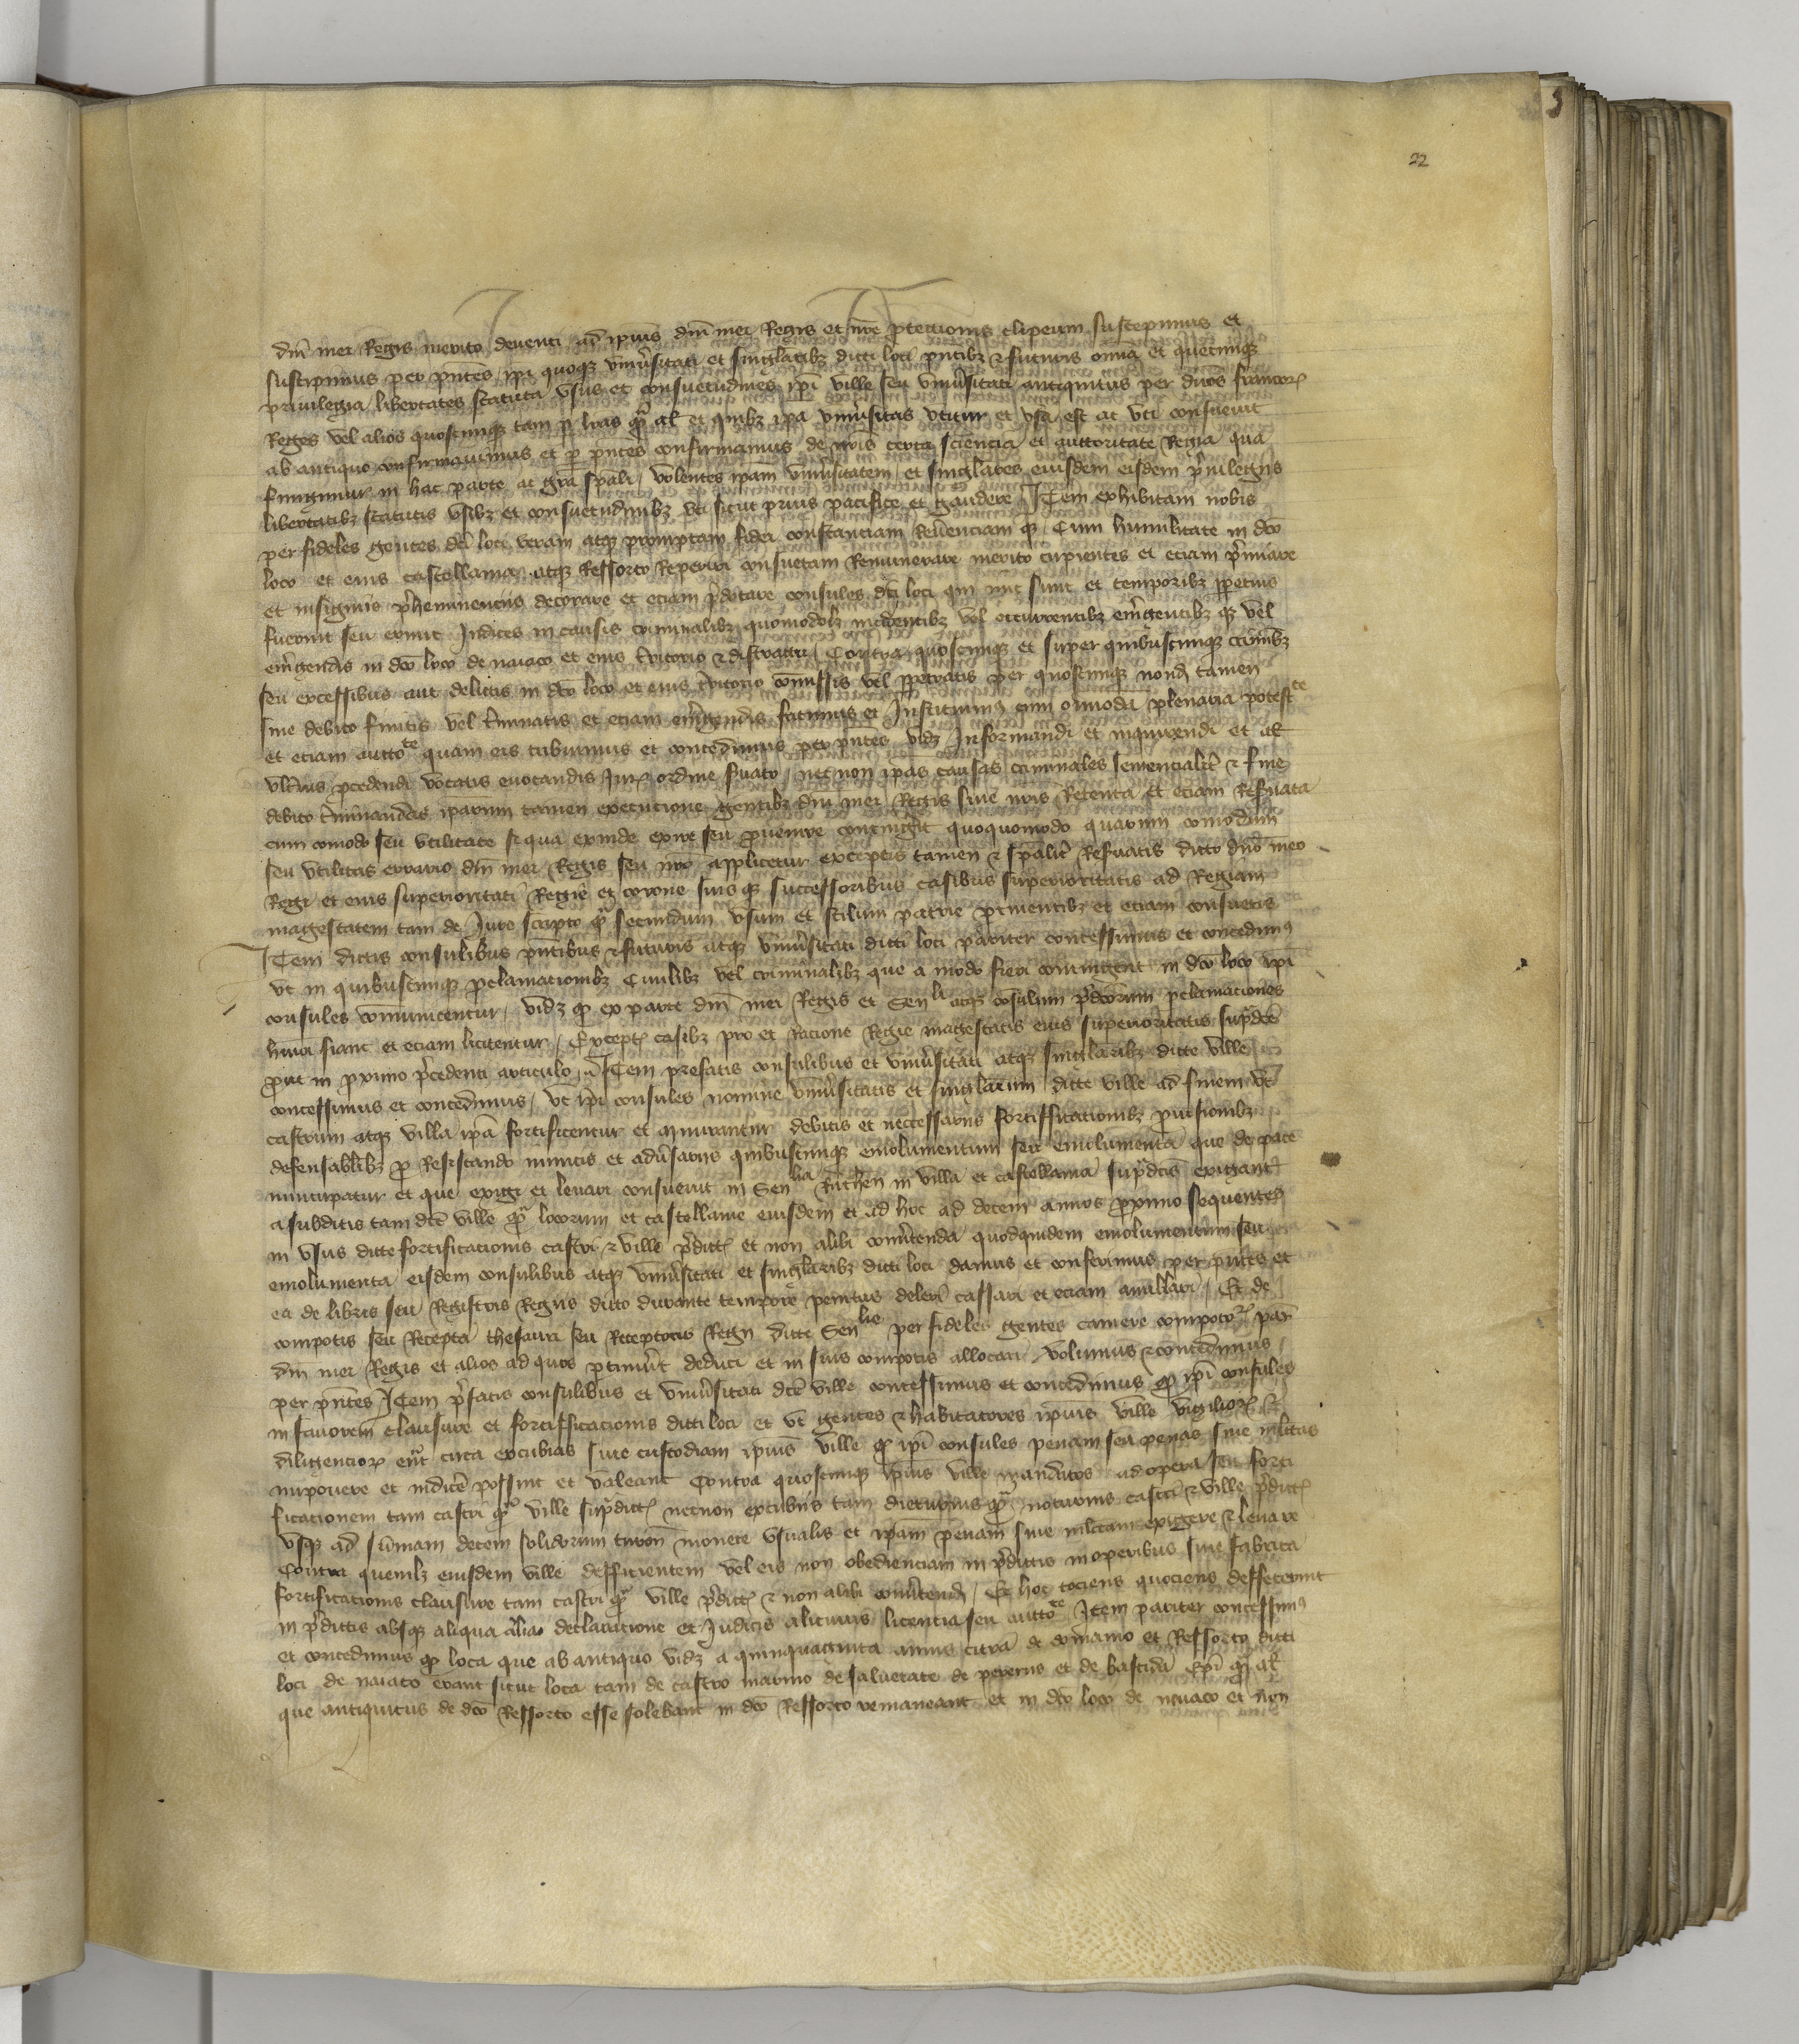 22
dni mei Regis merito deuenti ad ipius dni mei Regis et nre ptectionis clipeum suscepimus et
suscipimus per pntes ipi quoqz vniusitati et singlaribz dicti loci pntibz & futuris omnia et quecunqz
priuilegia libertates statuta vsus et consuetudines ipi ville seu vniusitati antiquitus per dnos francor
Reges vel alios quoscunqz tam p lras qr al et quibz ipa vniusitas vtitur et vsa est ac vti consueuit
ab antiquo confirmauimus et p pntes confirmamus de nris certa sciencia et auctoritate Regia qua
fungimur in hac parte ac gra spali volentes ipam vniusitatem et singlares eiusdem eisdem priuilegiis
libertatibz statutis vsibz et consuetudinibz vti sicut prius pacifice et gaudere Item exhibitam nobis
per fideles gentes dci loci veram atqz promptam fidei constanciam Reuenciam qz cum humilitate in dco
loco et eius castellania atqz Ressorto Reperiri consuetam Remunerare merito cupientes et eciam pmiare
et insigniis pheminenciis decorare et eciam pdotare consules dci loci qui nunc sunt et temporibz ppetuis
fuerint seu erunt Iudices in causis criminalibz quomodolz incidentibz vel occurrentibz emgentibz qz vel
emgendis in dco loco de naiaco et eius tritorio & districtu Contra quoscunqz et super quibuscunqz criminibz
seu excessibus aut delictis in dco loco et eius tritorio comissis vel ppetratis per quoscunqz nond tamen
sine debito finitis vel tminatis et eciam emgendis facimus et Instituimus cum omnioda plenaria potestte
et eciam auctote quam eis tribuimus et concedimus per pntes vidz Informandi et inquirendi et al
vltius pcedendi vocatis euocandis Iur ordine suato necnon ipas causas criminales sentencialit & fine
debito tminandas iparum tamen execucione gentibz dni mei Regis siue nris Retenta et eciam Resuata
cum comodo seu vtilitate si qua exinde exire seu puenire contingit quoquomodo quarum comodum
seu vtilitas errario dni mei Regis seu nro applicetur exceptis tamen & spalit Resuatis dicto dno meo
Regi et eius superioritati Regie et corone suis qz successoribus casibus superioritatis ad Regiam
magestatem tam de Iure scripto qr secundum vsum et stilum patrie ptinentibz et eciam consuetis
Item dictis consulibus pntibus & futuris atqz vniusitati dicti loci pariter concessimus et concedimus
vt in quibuscunqz pclamacionibz Ciuilibz vel criminalibz que a modo fieri contingent in dco loco ipi
consules comunicentur vidz qr ex parte dni mei Regis et Senlli atqz consulum pdcorum pclamaciones
hmoi fiant et eciam licitentur Except casibz pro et Racione Regie magestatis eius superioritatis supdce
prout in pximo pcedenti articulo Item prefatis consulibus et vniusitati atqz singlaribz dicte ville
concessimus et concedimus vt ipi consules nomine vniusitatis et singlarum dicte ville ad finem vt
castrum atqz villa ipa fortificentur et muniantur debitis et neccessariis fortifficationibz puisionibz
defensablibz p Resistando inimicis et adusariis quibuscunqz emolumentum seu emolumenta que de pace
nuncupatur et que exigi et leuari consueuit in Senlia Ruthen in villa et castellania supdcis exigant
a subditis tam dce ville qr locorum et castellanie eiusdem et ad hoc ad decem annos pximo sequentes
in vsus dicte fortificacionis castri & ville pdict et non alibi conutenda quodquidem emolumentum seu
emolumenta eisdem consulibus atqz vniusitati et singlaribz dicti loci damus et conferimus per pntes et
ea de libris seu Registris Regiis dicto durante tempore penitus deleri cassari et eciam anullari Et de
compotis seu Recepta thesauri seu Receptoris Regii dicte Senlie per fideles gentes camere compotor par
dni mei Regis et alios ad quos ptinuit deduci et in suis compotis allocari volumus & concedimus
per pntes Item pfatis consulibus et vniusitati dce ville concessimus et concedimus qr ipi consules
in fauorem clausure et fortifficacionis dicti loci et vt gentes & habitatores ipius ville vigilior
diligencior ent circa excubias siue custodiam ipius ville qr ipi consules penam seu penas siue mlctas
imponere et indicere possint et valeant Contra quoscunqz ipius ville mandatos ad opera seu forti
ficationem tam castri qr ville supdict necnon excubiis tam dieturnis qr nocturnis castri & ville pdict
vsqz ad summam decem solidorum turon monete vsualis et ipam penam siue mlctam exiggere & leuare
Contra quemlz eiusdem ville defficientem vel eis non obedienciam in pdictis in operibus siue fabrica
fortificacionis clausure tam castri qr ville pdict & non alibi conutend Et hoc tociens quociens deffecerint
in pdictis absqz aliqua alia declaracione et Iudicis alicuius licentia seu auctote Item pariter concessimus
et concedimus qr loca que ab antiquo vidz a quinquaginta annis citra de domanio et Ressorto dicti
loci de naiaco erant sicut loca tam de castro marino de saluetate de peyrens et de bastida Epi qr al
que antiquitus de dco Ressorto esse solebant in dco Ressorto remaneant et in dco loco de naiaco et non